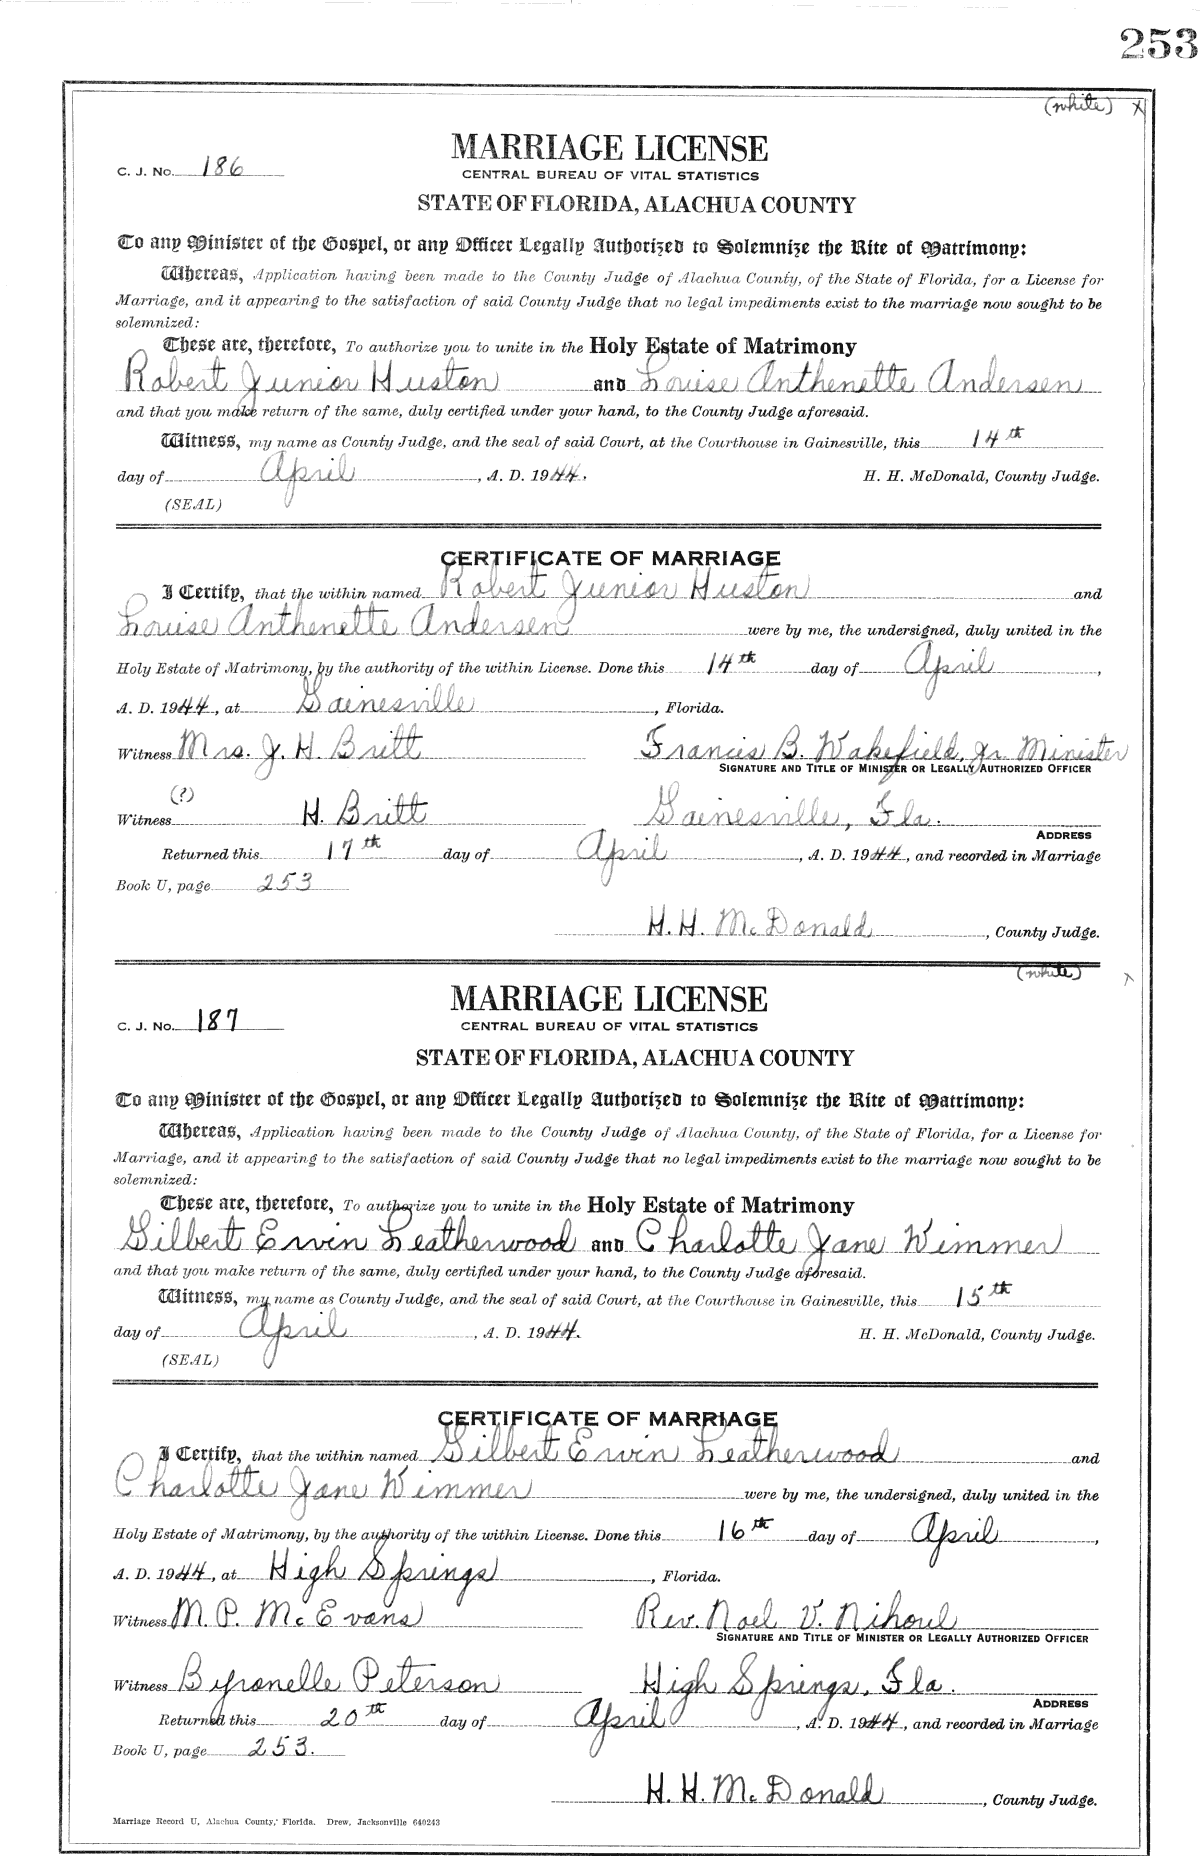 253
(white) X
MARRIAGE LICENSE
C. J. No. 186
CENTRAL BUREAU OF VITAL STATISTICS
STATE OF FLORIDA, ALACHUA COUNTY
To any Minister of the Gospel, or any Officer Legally Authorized to Solemnize the Rite of Matrimony:
Whereas, Application having been made to the County Judge of Alachua County, of the State of Florida, for a License for
Marriage, and it appearing to the satisfaction of said County Judge that no legal impediments exist to the marriage now sought to be
solemnized:
These are, therefore, To authorize you to unite in the Holy Estate of Matrimony
Robert Junior Huston and Louise Anthenette Andersen
and that you make return of the same, duly certified under your hand, to the County Judge aforesaid.
Witness, my name as County Judge, and the seal of said Court, at the Courthouse in Gainesville, this 14th
day of April, A. D. 1944. H. H. McDonald, County Judge.
(SEAL)
CERTIFICATE OF MARRIAGE
I Certify, that the within named Robert Junior Huston and
Louise Anthenette Andersen were by me, the undersigned, duly united in the
Holy Estate of Matrimony, by the authority of the within License. Done this 14th day of April,
A. D. 1944, at Gainesville, Florida.
Witness Mrs. J. H. Britt Francis B. Wakefield, Jr. Minister
SIGNATURE AND TITLE OF MINISTER OR LEGALLY AUTHORIZED OFFICER
(?)
Witness H. Britt Gainesville, Fla.
ADDRESS
Returned this 17th day of April, A. D. 1944, and recorded in Marriage
Book U, page 253
H. H. McDonald, County Judge.
(white) X
MARRIAGE LICENSE
C. J. No. 187
CENTRAL BUREAU OF VITAL STATISTICS
STATE OF FLORIDA, ALACHUA COUNTY
To any Minister of the Gospel, or any Officer Legally Authorized to Solemnize the Rite of Matrimony:
Whereas, Application having been made to the County Judge of Alachua County, of the State of Florida, for a License for
Marriage, and it appearing to the satisfaction of said County Judge that no legal impediments exist to the marriage now sought to be
solemnized:
These are, therefore, To authorize you to unite in the Holy Estate of Matrimony
Gilbert Ervin Leatherwood and Charlotte Jane Wimmer
and that you make return of the same, duly certified under your hand, to the County Judge aforesaid.
Witness, my name as County Judge, and the seal of said Court, at the Courthouse in Gainesville, this 15th
day of April, A. D. 1944. H. H. McDonald, County Judge.
(SEAL)
CERTIFICATE OF MARRIAGE
I Certify, that the within named Gilbert Ervin Leatherwood and
Charlotte Jane Wimmer were by me, the undersigned, duly united in the
Holy Estate of Matrimony, by the authority of the within License. Done this 16th day of April,
A. D. 1944, at High Springs, Florida.
Witness M. P. McEvans Rev. Noel V. Nihoul
SIGNATURE AND TITLE OF MINISTER OR LEGALLY AUTHORIZED OFFICER
Witness Byronelle Peterson High Springs, Fla.
ADDRESS
Returned this 20th day of April, A. D. 1944, and recorded in Marriage
Book U, page 253.
H. H. McDonald, County Judge.
Marriage Record U, Alachua County, Florida. Drew, Jacksonville 640243